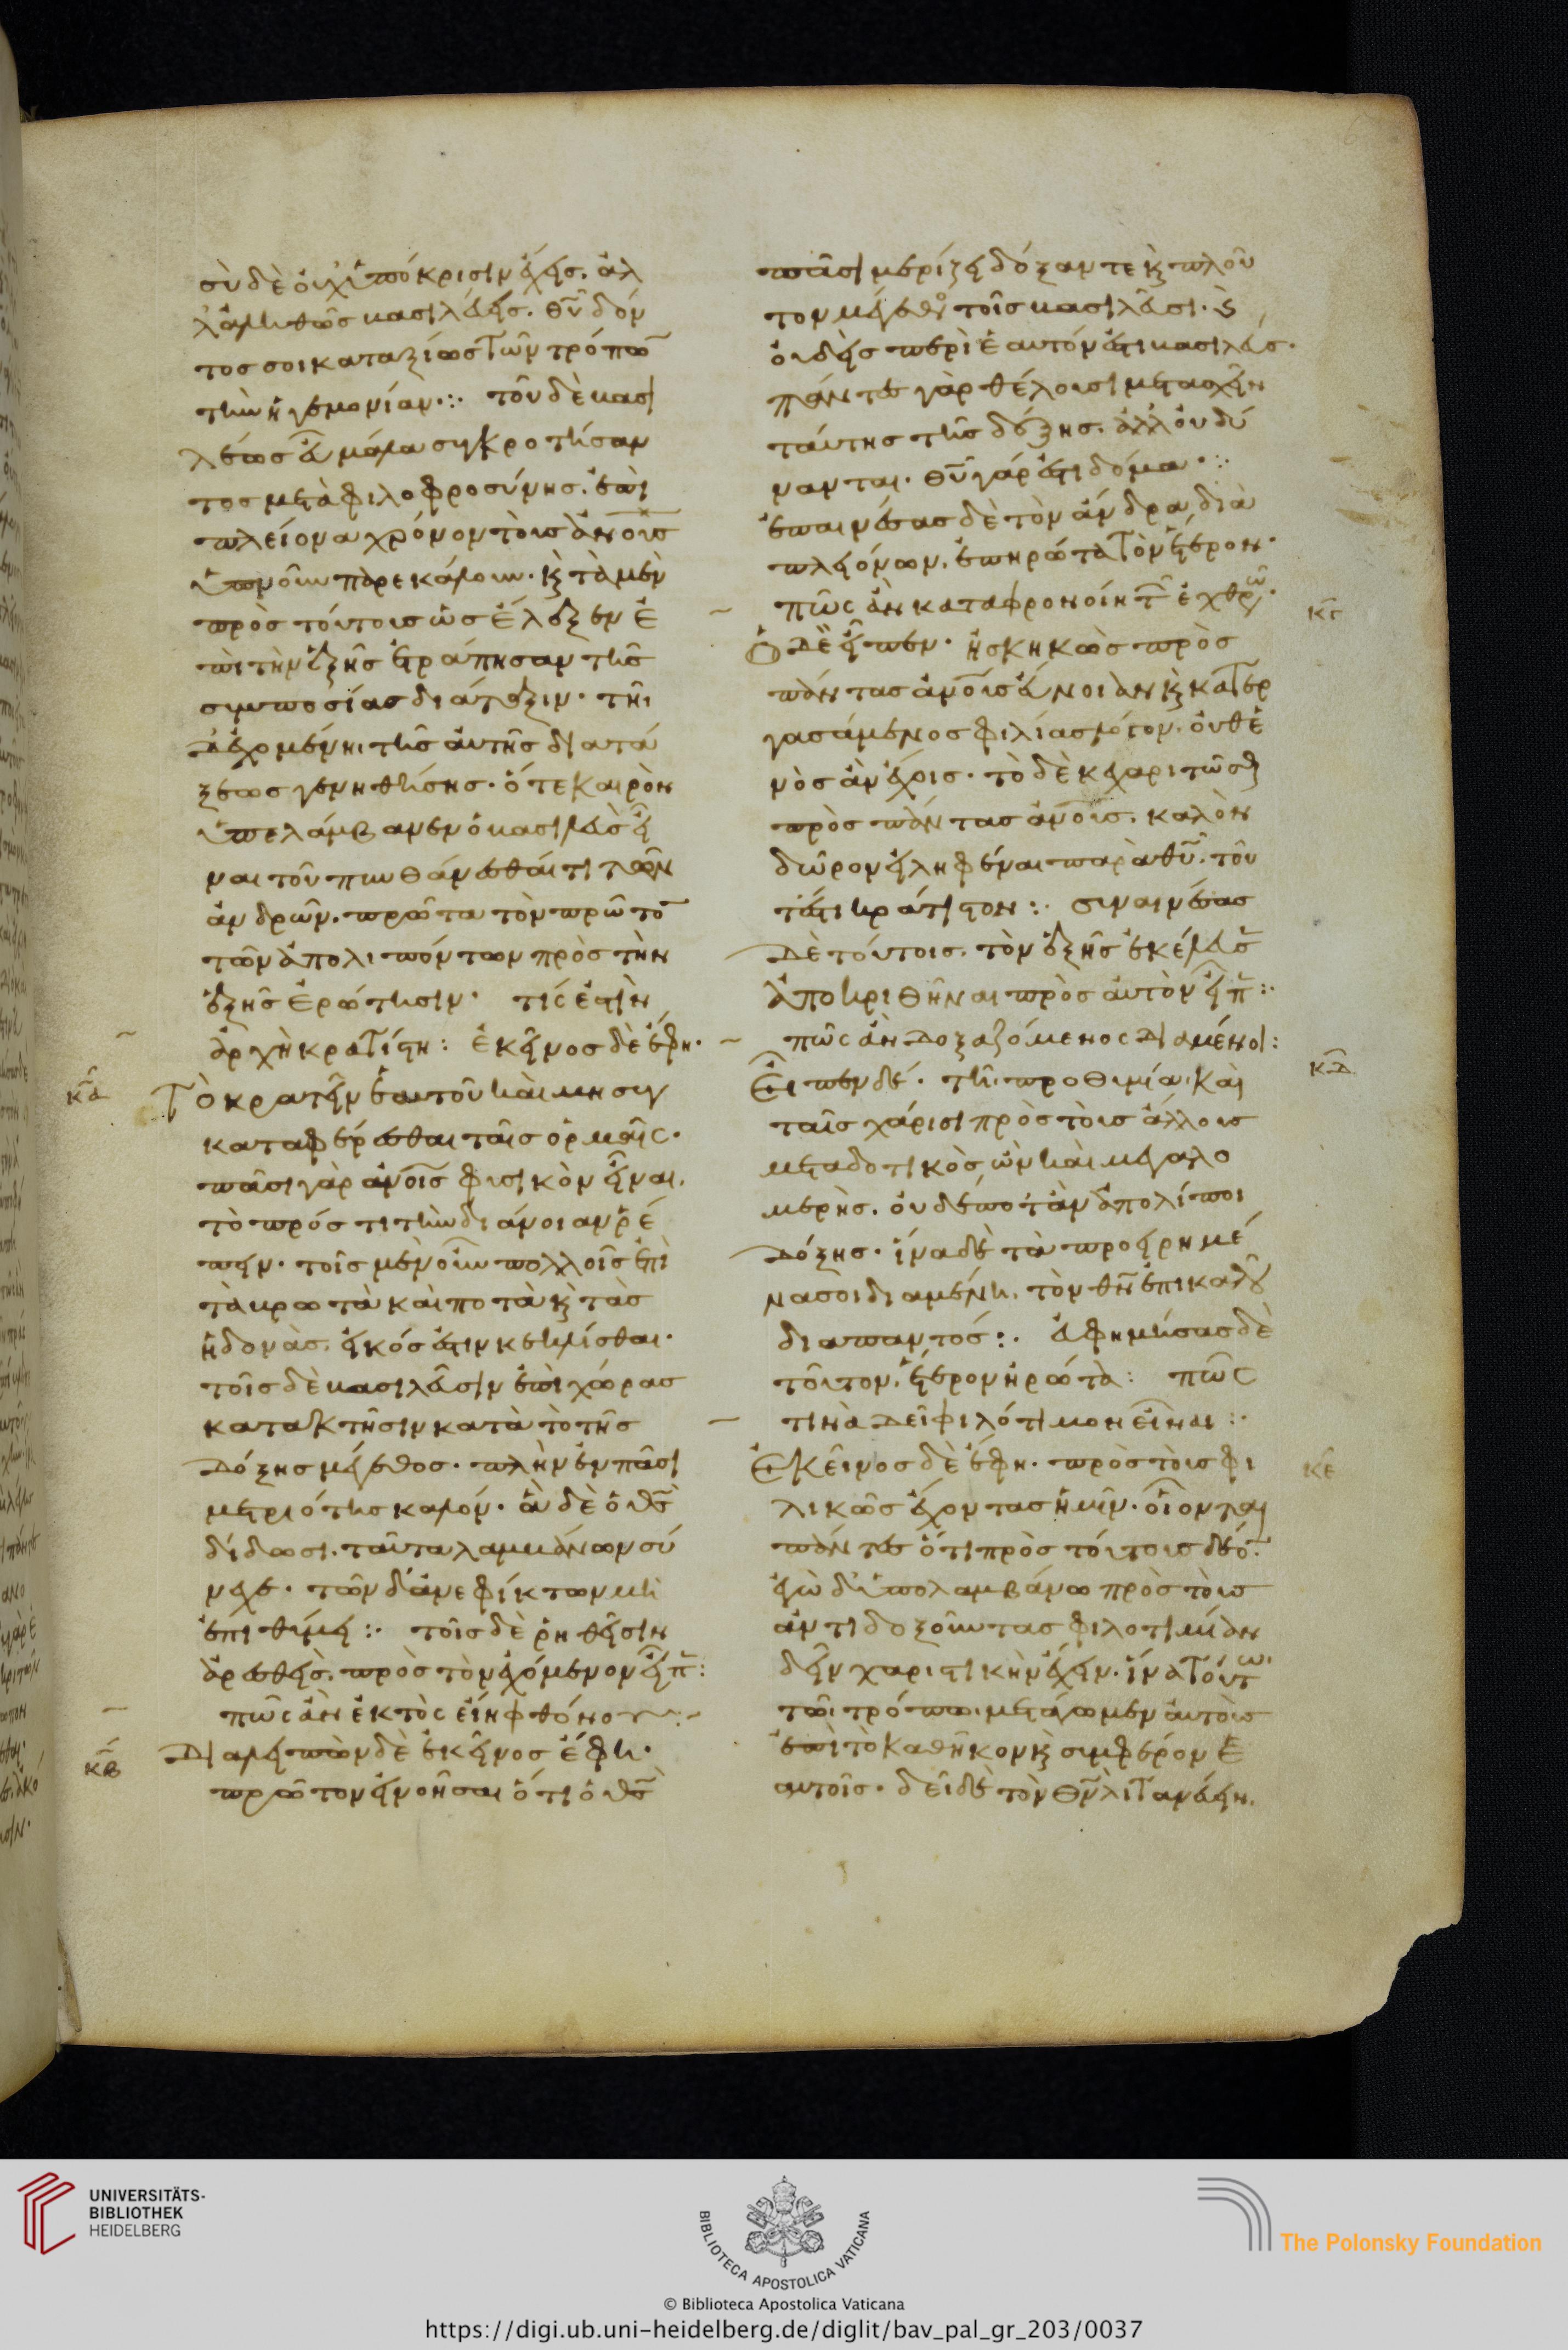 σὺ δὲ οὐχ ὑπόκρισιν ἔχεις. ἀλ
λ' ἀληθῶς βασιλεύεις. θῦ δόν
τος σοι καταξίως τῶν τρόπω
τὴν ἡγεμονίαν·:· τοῦ δὲ βασι
λέως εὖ μάλα συγκροτήσαν
τος μετὰ φιλοφροσύνης. ἐπὶ
πλείονα χρόνον τοὺς ἀνους
ὑπνοῦν παρεκάλουν· ϗ τὰ μὲν
πρὸς τούτους ὡς ἔληξεν ἐ
πὶ τὴν ἑξῆς ἐτράπησαν τῆς
συμποσίας διάταξιν· τῆι
δ' ἐχομένηι τῆς αὐτῆς διατά
ξεως γενηθείσης. ὅτε καιρὸν
ὑπελάμβανεν ὁ βασιλεὺς εἶ
ναι τοῦ πυνθάνεσθαί τι τῶν
ἀνδρῶν. ἠρώτα τὸν πρῶτο
τῶν ἀπολιπόντων πρὸς τὴν
ἑξῆς ἐρώτησιν· τίς ἐστὶν
ἀρχὴ κρατίστη: ἐκεῖνος δὲ ἔφη·
κα Τὸ κρατεῖν ἑαυτοῦ καὶ μὴ συγ
καταφέρεσθαι ταῖς ὁρμαῖς·
πᾶσι γὰρ ἀνοις φυσικὸν εἶναι.
τὸ πρός τι τὴν διάνοιαν ῥέ
πειν· τοῖς μὲν οὖν πολλοῖς ἐπὶ
τὰ βρωτὰ καὶ ποτὰ ϗ τὰς
ἡδονὰς. εἰκός ἐστιν κεκλίσθαι·
τοῖς δὲ βασιλεῦσιν ἐπὶ χώρας
κατακτῆσιν κατὰ τὸ τῆς
δόξης μέγεθος· πλὴν ἐν πᾶσι
μετριότης καλόν· ἃ δὲ ὁ θς
δίδωσι. ταῦτα λαμβάνων σύ
νεχε· τῶν δ' ἀνεφίκτων μὴ
ἐπιθύμει:· τοῖς δὲ ῥηθεῖσιν
ἀρεσθεὶς. πρὸς τὸν ἐχόμενον εἶπ:
πῶς ἂν ἐκτὸς εἴη φθόνου:
κβ Διαλείπων δὲ ἐκεῖνος ἔφη·
πρῶτον εἰ νοῆσαι ὅτι ὁ θς
πᾶσι μερίζει δόξαν τε ϗ πλού
του μέγεθος τοῖς βασιλεῦσι. ϗ
οὐδεὶς περὶ ἑαυτόν ἐστι βασιλεύς·
πάντες γὰρ θέλουσι μετασχεῖν
ταύτης τῆς δόξης. ἀλλ' οὐ δύ
νανται. θῦ γάρ ἐστι δόμα·:·
ἐπαινέσας δὲ τὸν ἄνδρα διὰ
πλειόνων. ἐπηρώτα τὸν ἕτερον·
πῶς ἂν καταφρονοίη τ ἐχθρῶ·
κγ Ὁ δὲ εἶπεν· ἠσκηκὼς πρὸς
πάντας ἀνους εὔνοιαν ϗ κατερ
γασάμενος φιλίας λόγον. οὐθε
νὸς ἂν ἔχοις· τὸ δὲ κεχαριτῶσθ
πρὸς πάντας ἀνους. καλὸν
δῶρον εἰληφέναι παρὰ θῦ. τοῦ
τ' ἔστι κράτιστον:· συναινέσας
δὲ τούτοις. τὸν ἑξῆς ἐκέλευς
ἀποκριθῆναι πρὸς αὐτὸν εἶπ:·
πῶς ἂν δοξαζόμενος διαμένοι:
κδ Εἶπεν δέ· τῆ προθυμία καὶ
ταῖς χάρισι πρὸς τοὺς ἄλλους
μεταδοτικὸς ὢν καὶ μεγαλο
μερὴς. οὐδέποτ' ἂν ἀπολίποι
δόξης· ἵνα δὲ τὰ προειρημέ
να σοι διαμένη. τὸν θν ἐπικαλοῦ
διαπαντός:· εὐφημήσας δὲ
τοῦτον. ἕτερον ἠρώτα: πῶς
τίνα δεῖ φιλότιμον εἶναι:·
κε Ἐκεῖνος δὲ ἔφη· πρὸς τοὺς φι
λικῶς ἔχοντας ἡμῖν· οἴονται
πάντες ὅτι πρὸς τούτους δέο·
ἐγὼ δ' ὑπολαμβάνω πρὸς τοὺς
ἀντιδοξοῦντας φιλοτιμίαν
δεῖν χαριστικὴν ἔχειν. ἵνα τούτωι
τῶι τρόπωι μετάγωμεν αὐτοὺς
ἐπὶ τὸ καθῆκον ϗ συμφέρον ἑ
αυτοῖς· δεῖ δὲ τὸν θν λιτανεύειν.
UNIVERSITÄTS-
BIBLIOTHEK
HEIDELBERG
BIBLIOTECA APOSTOLICA VATICANA
The Polonsky Foundation
© Biblioteca Apostolica Vaticana
https://digi.ub.uni-heidelberg.de/diglit/bav_pal_gr_203/0037